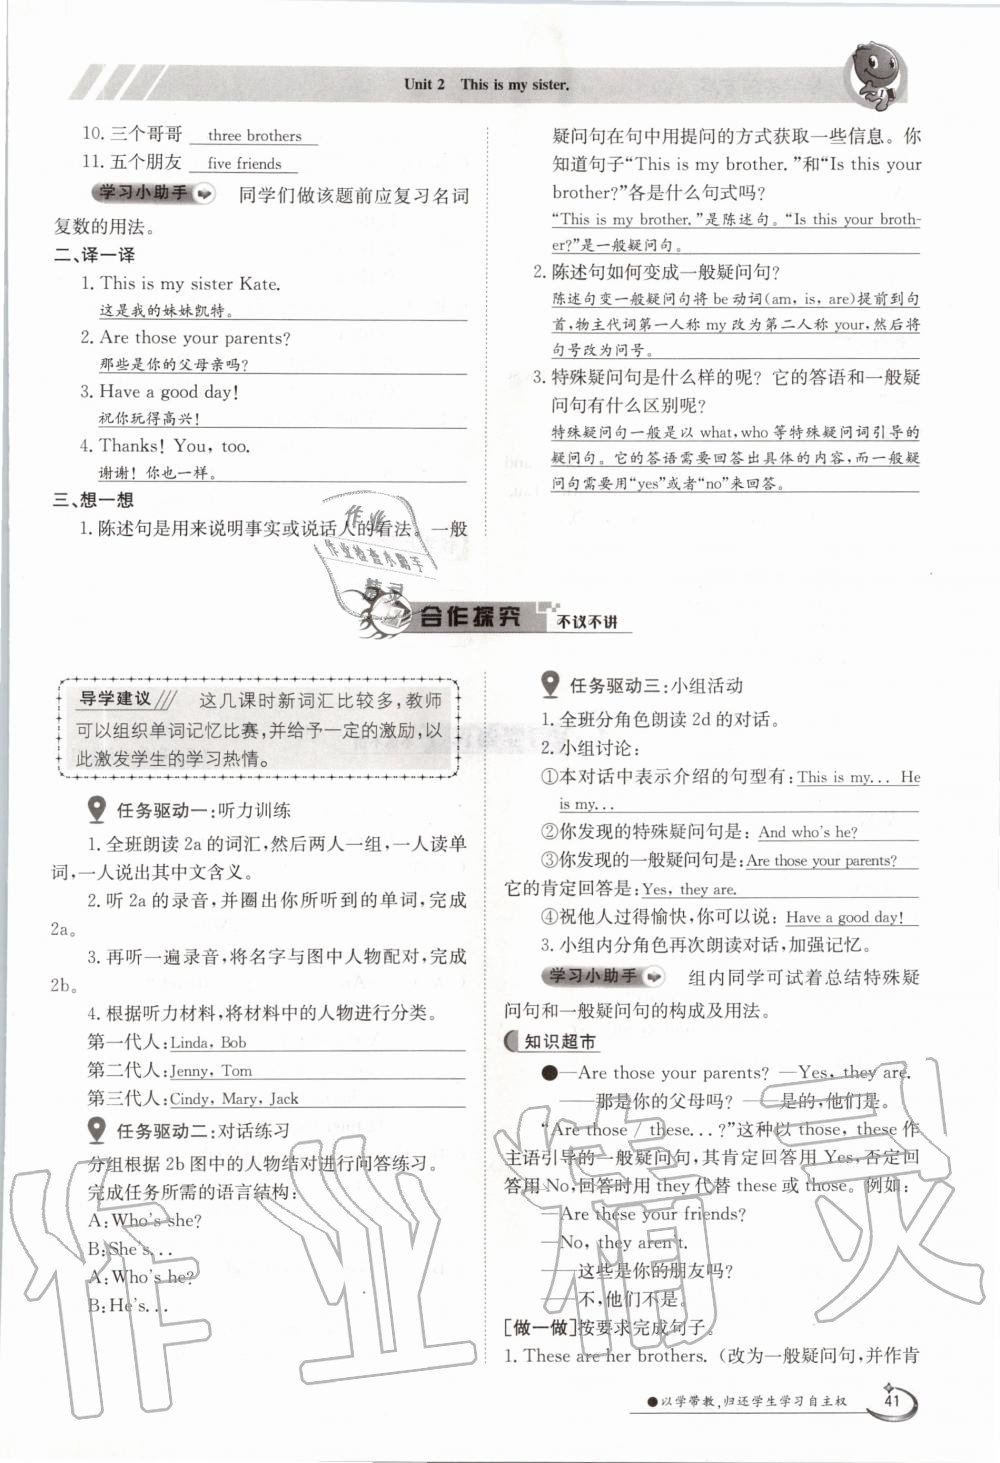 Unit 2 This is my sister.
10. 三个哥哥 three brothers
11. 五个朋友 five friends
学习小助手 同学们做该题前应复习名词
复数的用法。
二、译一译
1. This is my sister Kate.
这是我的妹妹凯特。
2. Are those your parents?
那些是你的父母亲吗?
3. Have a good day!
祝你玩得高兴!
4. Thanks! You, too.
谢谢!你也一样。
三、想一想
1. 陈述句是用来说明事实或说话人的看法。一般
疑问句在句中用提问的方式获取一些信息。你
知道句子“This is my brother.”和“Is this your
brother?”各是什么句式吗?
“This is my brother.”是陈述句。“Is this your broth-
er?”是一般疑问句。
2. 陈述句如何变成一般疑问句?
陈述句变一般疑问句将 be 动词(am, is, are)提前到句
首,物主代词第一人称 my 改为第二人称 your,然后将
句号改为问号。
3. 特殊疑问句是什么样的呢? 它的答语和一般疑
问句有什么区别呢?
特殊疑问句一般是以 what, who 等特殊疑问词引导的
疑问句。它的答语需要回答出具体的内容,而一般疑
问句需要用“yes”或者“no”来回答。
作业
作业检查小助手
精灵
合作探究 不议不讲
导学建议 这几课时新词汇比较多,教师
可以组织单词记忆比赛,并给予一定的激励,以
此激发学生的学习热情。
任务驱动一:听力训练
1. 全班朗读 2a 的词汇,然后两人一组,一人读单
词,一人说出其中文含义。
2. 听 2a 的录音,并圈出你所听到的单词,完成
2a。
3. 再听一遍录音,将名字与图中人物配对,完成
2b。
4. 根据听力材料,将材料中的人物进行分类。
第一代人:Linda, Bob
第二代人:Jenny, Tom
第三代人:Cindy, Mary, Jack
任务驱动二:对话练习
分组根据 2b 图中的人物结对进行问答练习。
完成任务所需的语言结构:
A: Who's she?
B: She's...
A: Who's he?
B: He's...
任务驱动三:小组活动
1. 全班分角色朗读 2d 的对话。
2. 小组讨论:
①本对话中表示介绍的句型有:This is my... He
is my...
②你发现的特殊疑问句是: And who's he?
③你发现的一般疑问句是:Are those your parents?
它的肯定回答是:Yes, they are.
④祝他人过得愉快,你可以说: Have a good day!
3. 小组内分角色再次朗读对话,加强记忆。
学习小助手 组内同学可试着总结特殊疑
问句和一般疑问句的构成及用法。
知识超市
●—Are those your parents? —Yes, they are.
——那是你的父母吗? ——是的,他们是。
“Are those / these...?”这种以 those, these 作
主语引导的一般疑问句,其肯定回答用 Yes,否定回
答用 No,回答时用 they 代替 these 或 those。例如:
—Are these your friends?
—No, they aren't.
——这些是你的朋友吗?
——不,他们不是。
[做一做]按要求完成句子。
1. These are her brothers. (改为一般疑问句,并作肯
●以学带教,归还学生学习自主权
41
作业精灵